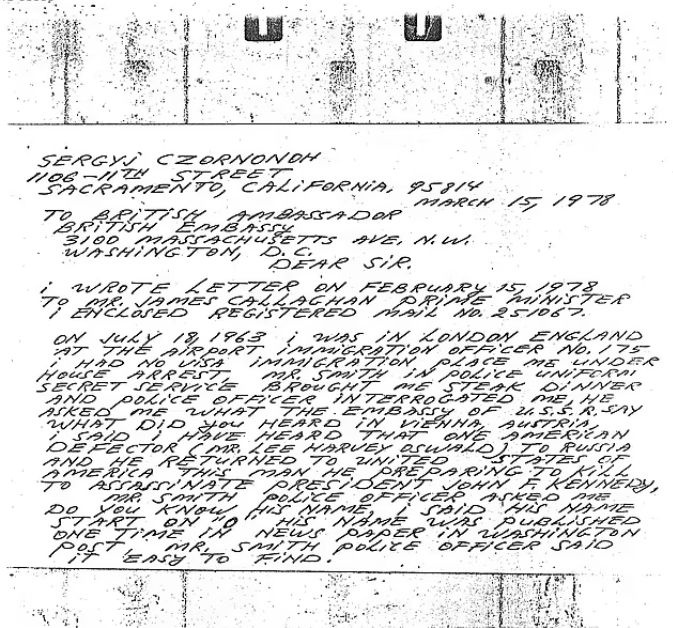 SERGYJ CZORNONOH
1106-11TH STREET
SACRAMENTO, CALIFORNIA, 95814
MARCH 15, 1978
TO BRITISH AMBASSADOR
BRITISH EMBASSY
3100 MASSACHUSETTS AVE. N.W.
WASHINGTON, D.C.
DEAR SIR.
i WROTE LETTER ON FEBRUARY 15, 1978
TO MR. JAMES CALLAGHAN PRIME MINISTER
i ENCLOSED REGISTERED MAIL NO. 251067.
ON JULY 18, 1963 i WAS IN LONDON ENGLAND
AT THE AIRPORT IMMIGRATION OFFICER NO. 175
i HAD NO VISA IMMIGRATION PLACE ME UNDER
HOUSE ARREST. MR. SMITH IN POLICE UNIFORM
SECRET SERVICE BROUGHT ME STEAK DINNER
AND POLICE OFFICER INTERROGATED ME, HE
ASKED ME WHAT THE EMBASSY OF U.S.S.R. SAY
WHAT DID YOU HEARD IN VIENNA, AUSTRIA,
i SAID i HAVE HEARD THAT ONE AMERICAN
DEFECTOR (MR. LEE HARVEY OSWALD) TO RUSSIA
AND HE RETURNED TO UNITED STATES OF
AMERICA THIS MAN HE PREPARING TO KILL
TO ASSASSINATE PRESIDENT JOHN F. KENNEDY,
MR. SMITH POLICE OFFICER ASKED ME
DO YOU KNOW HIS NAME, i SAID HIS NAME
START ON "O" HIS NAME WAS PUBLISHED
ONE TIME IN NEWS PAPER IN WASHINGTON
POST. MR. SMITH POLICE OFFICER SAID
IT EASY TO FIND.